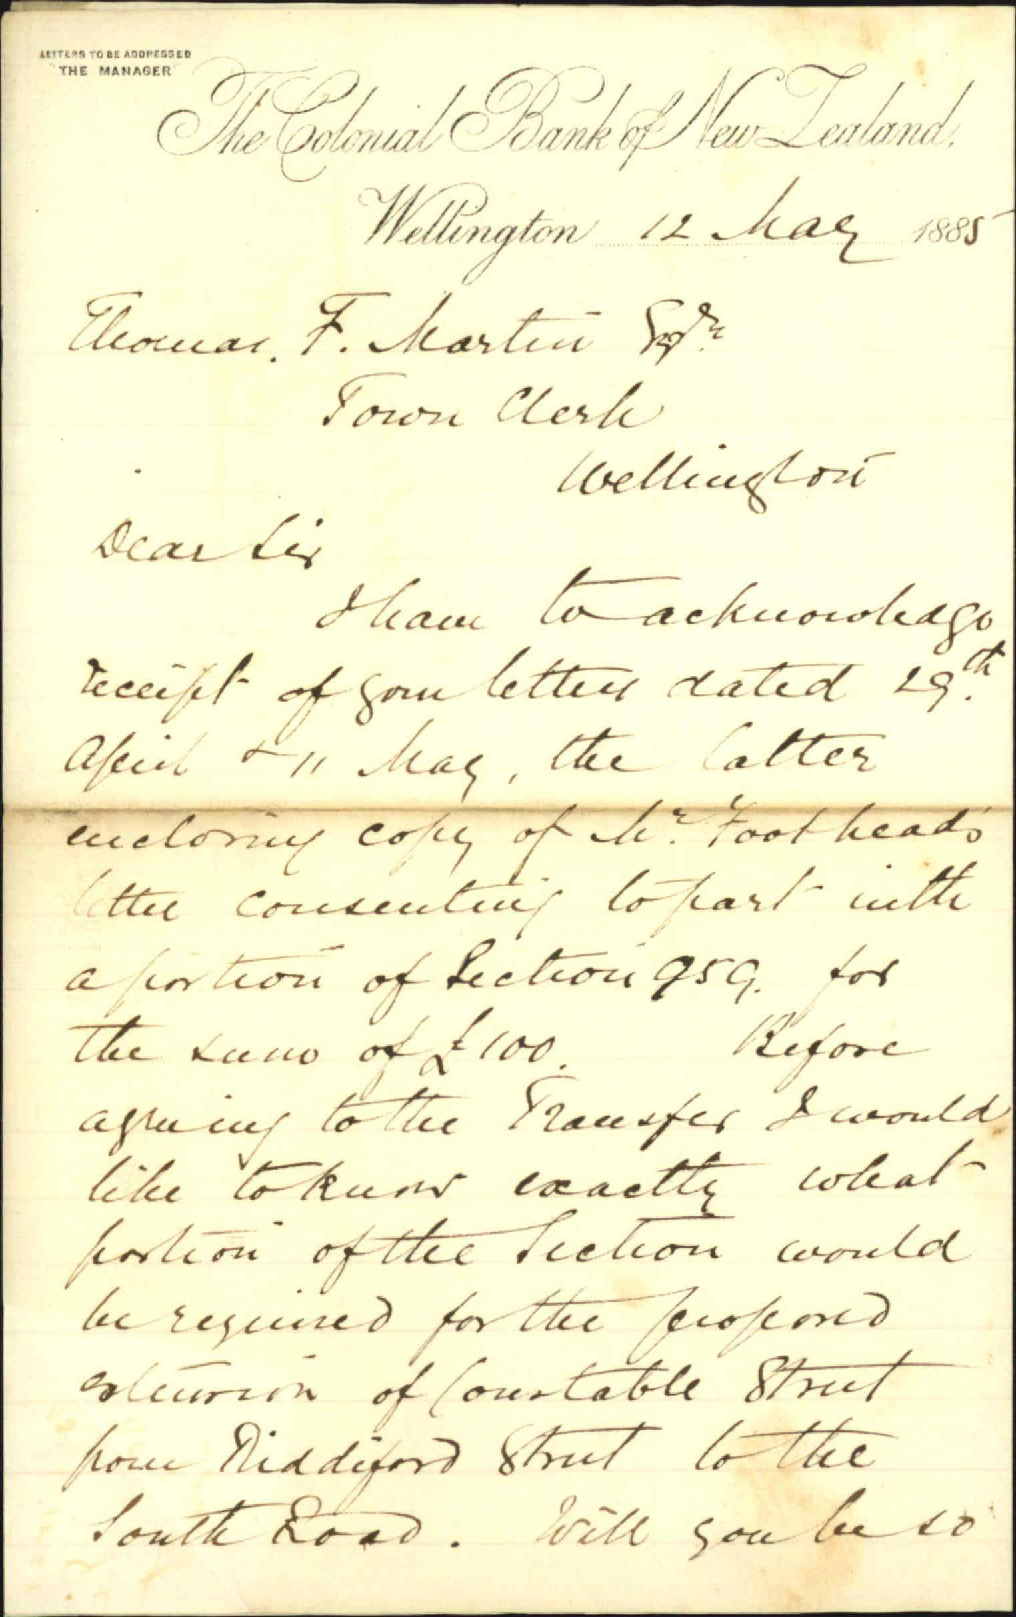 LETTERS TO BE ADDRESSED
"THE MANAGER"
The Colonial Bank of New Zealand.
Wellington 12 May 1885
Thomas. F. Martin Esqre
Town Clerk
Wellington
Dear Sir
I have to acknowledge
receipt of your letters dated 29th.
April & 11 May, the latter
enclosing copy of Mr. Foothead's
letter consenting to part with
a portion of Section 959. for
the sum of £100. Before
agreeing to the Transfer I would
like to know exactly what
portion of the Section would
be required for the proposed
extension of Constable Street
from Riddiford Street to the
South Road. Will you be so